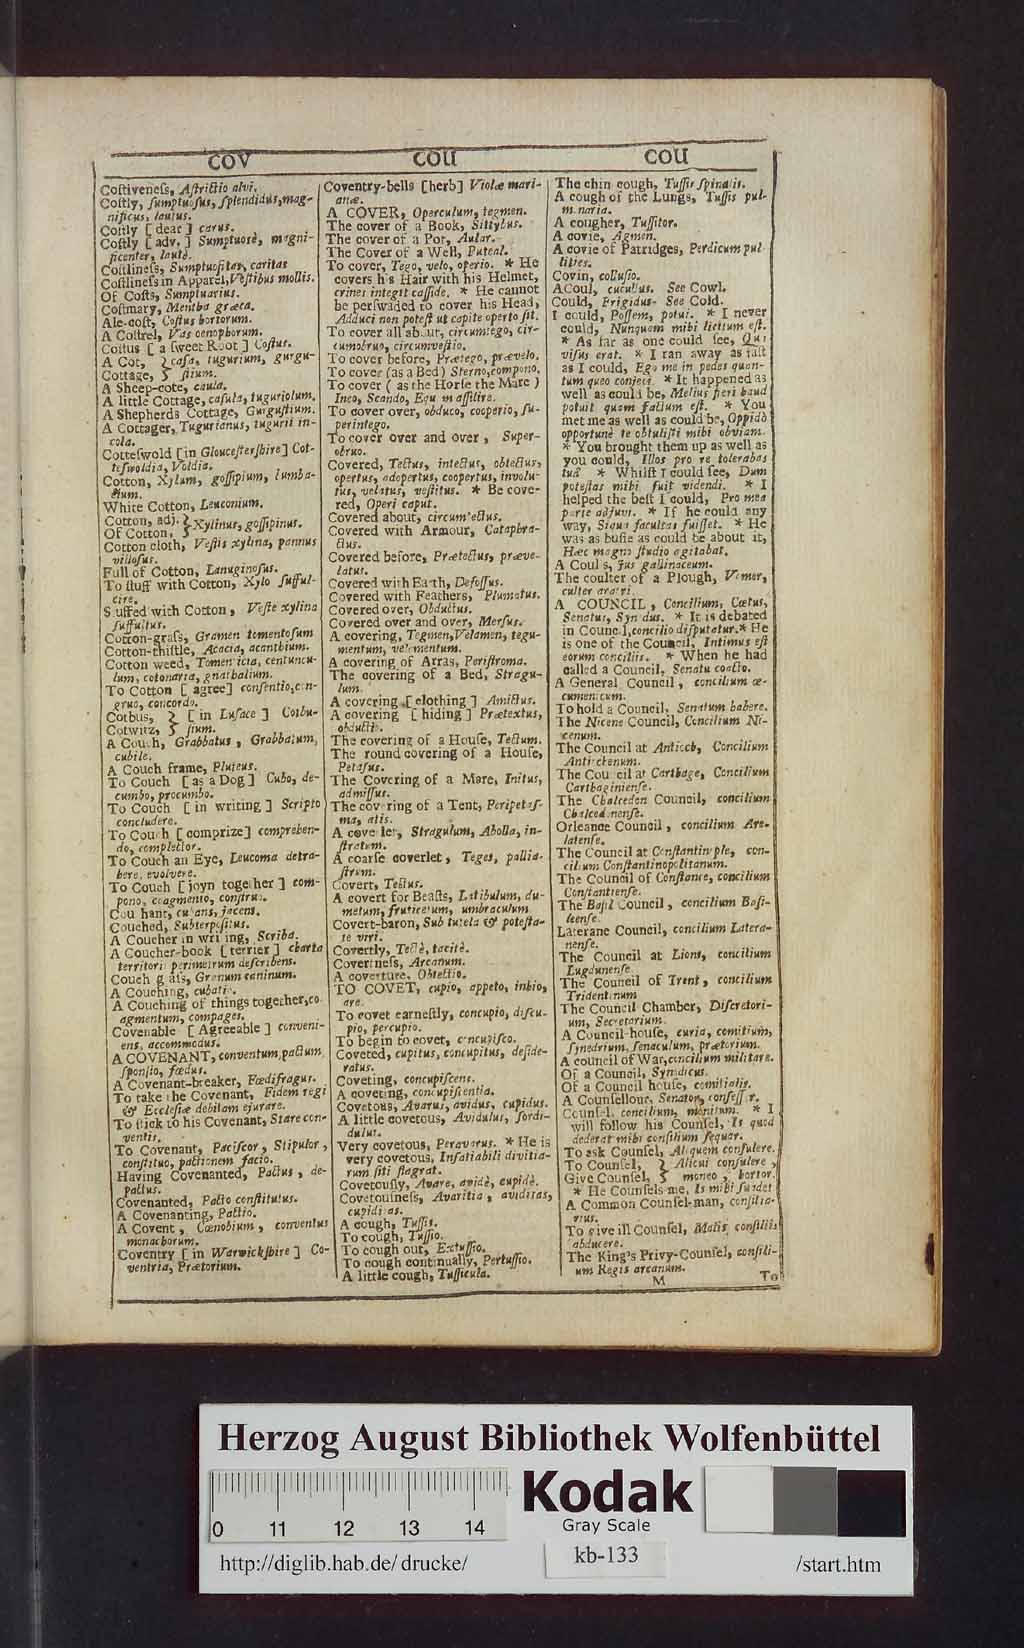 COV
COU
COU
Coſtiveneſs, Aſtrictio alvi.
Coſtly, ſumptuoſus, ſplendidus, mag-
nificus, lautus.
Coſtly [dear] carus.
Coſtly [adv.] Sumptuosè, magni-
ficenter, lautè.
Coſtlineſs, Sumptuoſitas, caritas
Coſtlineſs in Apparel, Veſtibus mollis.
Of Coſts, Sumptuarius.
Coſtmary, Mentha græca.
Ale-coſt, Coſtus hortorum.
A Coſtrel, Vas oenophorum.
Coſtus [a ſweet Root] Coſtus.
A Cot, } caſa, tugurium, gurgu-
Cottage, } ſtium.
A Sheep-cote, caula.
A little Cottage, caſula, tuguriolum.
A Shepherds Cottage, Gurguſtium.
A Cottager, Tugurianus, tugurii in-
cola.
Cotteſwold [in Gloucesterſhire] Cot-
teſwoldia, Voldia.
Cotton, Xylum, goſſipium, lumba-
White Cotton, Leuconium.
Cotton, adj. } Xylinus, goſſipinus.
Of Cotton, }
Cotton cloth, Veſtis xylina, pannus
villoſus.
Full of Cotton, Lanuginoſus.
To ſtuff with Cotton, Xylo ſufful-
cire.
Stuffed with Cotton, Veſte xylina
ſuffultus.
Cotton-graſs, Gramen tomentoſum
Cotton-thiſtle, Acacia, acanthium.
Cotton weed, Tomenticia, centuncu-
lum, cotonaria, gnaphalium.
To Cotton [agree] conſentio, con-
gruo, concordo.
Cotbus, } [in Luſace] Cotbu-
Cotwitz, } ſium.
A Couch, Grabbatus, Grabbatum,
cubile.
A Couch frame, Pluteus.
To Couch [as a Dog] Cubo, de-
cumbo, procumbo.
To Couch [in writing] Scripto
concludere.
To Couch [comprize] comprehen-
do, complector.
To Couch an Eye, Leucoma detra-
here, evolvere.
To Couch [joyn together] com-
pono, coagmento, conſtruo.
Couchant, cubans, jacens.
Couched, Subterpoſitus.
A Coucher in writing, Scriba.
A Coucher-book [terrier] charta
territorii perimetrum deſcribens.
Couch graſs, Gramen caninum.
A Couching, cubatio.
A Couching of things together, co-
agmentum, compages.
Covenable [Agreeable] conveni-
ens, accommodus.
A COVENANT, conventum, pactum,
ſponſio, fœdus.
A Covenant-breaker, Fœdifragus.
To take the Covenant, Fidem regi
& Eccleſiæ debitam ejurare.
To ſtick to his Covenant, Stare con-
ventis.
To Covenant, Paciſcor, Stipulor,
conſtituo, pactionem facio.
Having Covenanted, Pactus, de-
pactus.
Covenanted, Pacto conſtitutus.
A Covenanting, Pactio.
A Covent, Cœnobium, conventus
monachorum.
Coventry [in Warwickſhire] Co-
ventria, Prætorium.
Coventry-bells [herb] Violæ mari-
anæ.
A COVER, Operculum, tegmen.
The cover of a Book, Sittybus.
The cover of a Pot, Aular.
The Cover of a Well, Puteal.
To cover, Tego, velo, operio. * He
covers his Hair with his Helmet,
crines integit caſſide. * He cannot
be perſwaded to cover his Head,
Adduci non poteſt ut capite operto ſit.
To cover all about, circumtego, cir-
cumobruo, circumveſtio.
To cover before, Prætego, prævelo.
To cover (as a Bed) Sterno, compono.
To cover (as the Horſe the Mare)
Ineo, Scando, Equam aſſilire.
To cover over, obduco, cooperio, ſu-
perintego.
To cover over and over, Super-
obruo.
Covered, Tectus, intectus, obtectus,
opertus, adopertus, coopertus, involu-
tus, velatus, veſtitus. * Be cove-
red, Operi caput.
Covered about, circumtectus.
Covered with Armour, Cataphra-
ctus.
Covered before, Prætectus, præve-
latus.
Covered with Earth, Defoſſus.
Covered with Feathers, Plumatus.
Covered over, Obductus.
Covered over and over, Merſus.
A covering, Tegmen, Velamen, tegu-
mentum, velamentum.
A covering of Arras, Periſtroma.
The covering of a Bed, Stragu-
lum.
A covering [clothing] Amictus.
A covering [hiding] Prætextus,
obductio.
The covering of a Houſe, Tectum.
The round covering of a Houſe,
Petaſus.
The Covering of a Mare, Initus,
admiſſus.
The covering of a Tent, Peripetaſ-
ma, atis.
A coverlet, Stragulum, Abolla, in-
ſtratum.
A coarſe coverlet, Teges, pallia-
ſtrum.
Covert, Tectus.
A covert for Beaſts, Latibulum, du-
metum, fruticetum, umbraculum
Covert-baron, Sub tutela & poteſta-
te viri.
Covertly, Tectè, tacitè.
Covertneſs, Arcanum.
A coverture, Obtectio.
TO COVET, cupio, appeto, inhio,
aveo.
To covet earneſtly, concupio, diſcu-
pio, percupio.
To begin to covet, concupiſco.
Coveted, cupitus, concupitus, deſide-
ratus.
Coveting, concupiſcens.
A coveting, concupiſcentia.
Covetous, Avarus, avidus, cupidus.
A little covetous, Avidulus, ſordi-
dulus.
Very covetous, Peravarus. * He is
very covetous, Inſatiabili divitia-
rum ſiti flagrat.
Covetouſly, Avare, avidè, cupidè.
Covetouſneſs, Avaritia, aviditas,
cupiditas.
A cough, Tuſſis.
To cough, Tuſſio.
To cough out, Extuſſio.
To cough continually, Pertuſſio.
A little cough, Tuſſicula.
The chin cough, Tuſſis ſpinalis.
A cough of the Lungs, Tuſſis pul-
monaria.
A cougher, Tuſſitor.
A covie, Agmen.
A covie of Patridges, Perdicum pul-
lities.
Covin, colluſio.
A Coul, cucullus. See Cowl.
Could, Frigidus- See Cold.
I could, Poſſem, potui. * I never
could, Nunquam mihi licitum eſt.
* As far as one could ſee, Qui
viſus erat. * I ran away as faſt
as I could, Ego me in pedes quan-
tum queo conjeci. * It happened as
well as could be, Melius fieri haud
potuit quam factum eſt. * You
met me as well as could be, Oppidò
opportunè te obtuliſti mihi obviam.
* You brought them up as well as
you could, Illos pro re tolerabas
tuâ * Whilſt I could ſee, Dum
poteſtas mihi fuit videndi. * I
helped the beſt I could, Pro mea
parte adjuvi. * If he could any
way, Siqua facultas fuiſſet. * He
was as buſie as could be about it,
Hæc magno ſtudio agitabat.
A Coulis, Jus gallinaceum.
The coulter of a Plough, Vomer,
culter aratri.
A COUNCIL, Concilium, Cœtus,
Senatus, Synodus. * It is debated
in Council, concilio diſputatur. * He
is one of the Council, Intimus eſt
eorum conciliis. * When he had
called a Council, Senatu coacto.
A General Council, concilium œ-
cumenicum.
To hold a Council, Senatum habere.
The Nicene Council, Concilium Ni-
cenum.
The Council at Antioch, Concilium
Antiochenum.
The Council at Carthage, Concilium
Carthaginienſe.
The Chalcedon Council, concilium
Chalcedonenſe.
Orleance Council, concilium Are-
latenſe.
The Council at Conſtantinople, con-
cilium Conſtantinopolitanum.
The Council of Conſtance, concilium
Conſtantienſe.
The Baſil Council, concilium Baſi-
lienſe.
Laterane Council, concilium Latera-
nenſe.
The Council at Lions, concilium
Lugdunenſe
The Council of Trent, concilium
Tridentinum
The Council Chamber, Diſcretori-
um, Secretarium.
A Council-houſe, curia, comitium,
ſynedrium, ſenaculum, prætorium.
A council of War, concilium militare.
Of a Council, Syndicus.
Of a Council houſe, comitialis.
A Counſellour, Senator, conſeſſor.
Counſel, concilium, monitum. * I
will follow his Counſel, Is quod
dederat mihi conſilium ſequar.
To ask Counſel, Aliquem conſulere.
To Counſel, } Alicui conſulere,
Give Counſel, } moneo, hortor.
* He Counſels me, Is mihi ſuadet
A Common Counſel-man, conſilia-
rius.
To give ill Counſel, Malis conſiliis
abducere.
The King's Privy-Counſel, conſili-
um Regis arcanum.
M
To
Herzog August Bibliothek Wolfenbüttel
0 11 12 13 14
Kodak
Gray Scale
kb-133
http://diglib.hab.de/drucke/
/start.htm